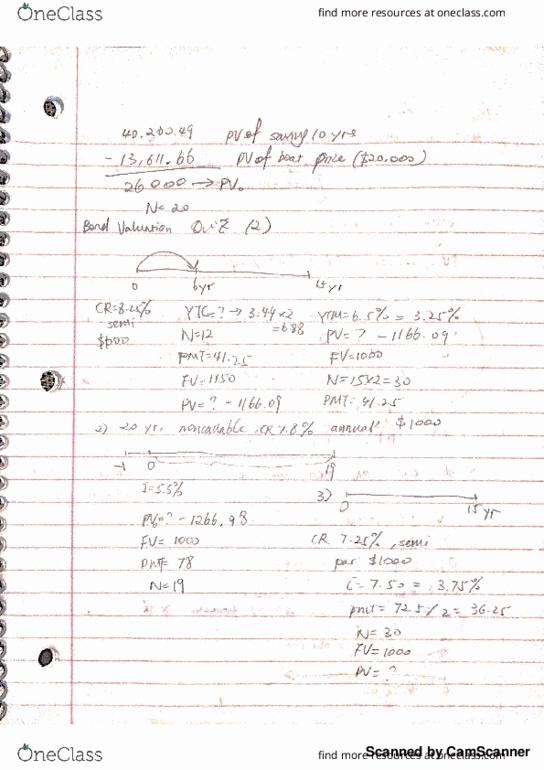 OneClass
find more resources at oneclass.com
40,200.49 PV of saving 10 yrs
- 13,611.66 PV of boat price ($20.000)
26000 → PV.
N= 20
Bond Valuation Quiz (2)
0 6yr 15 yr
CR=8.25%
semi
$1000
YTC=? → 3.44 x2
=6.88
N=12
PMT=41.25
FV=1150
PV=? -1166.09
YTM=6.5% = 3.25%
PV=? -1166.09
FV=1000
N=15x2=30
PMT=41.25
2) 20 yr. noncallable, CR 7.8% annual $1000
-1 0 19
I=5.5%
PV=? -1266.98
FV= 1000
PMT= 78
N=19
3) 0 15 yr
CR 7.25%, semi
par $1000
i= 7.50 = 3.75%
pmt= 72.5/2= 36.25
N=30
FV=1000
PV=?
Scanned by CamScanner
OneClass
find more resources at oneclass.com